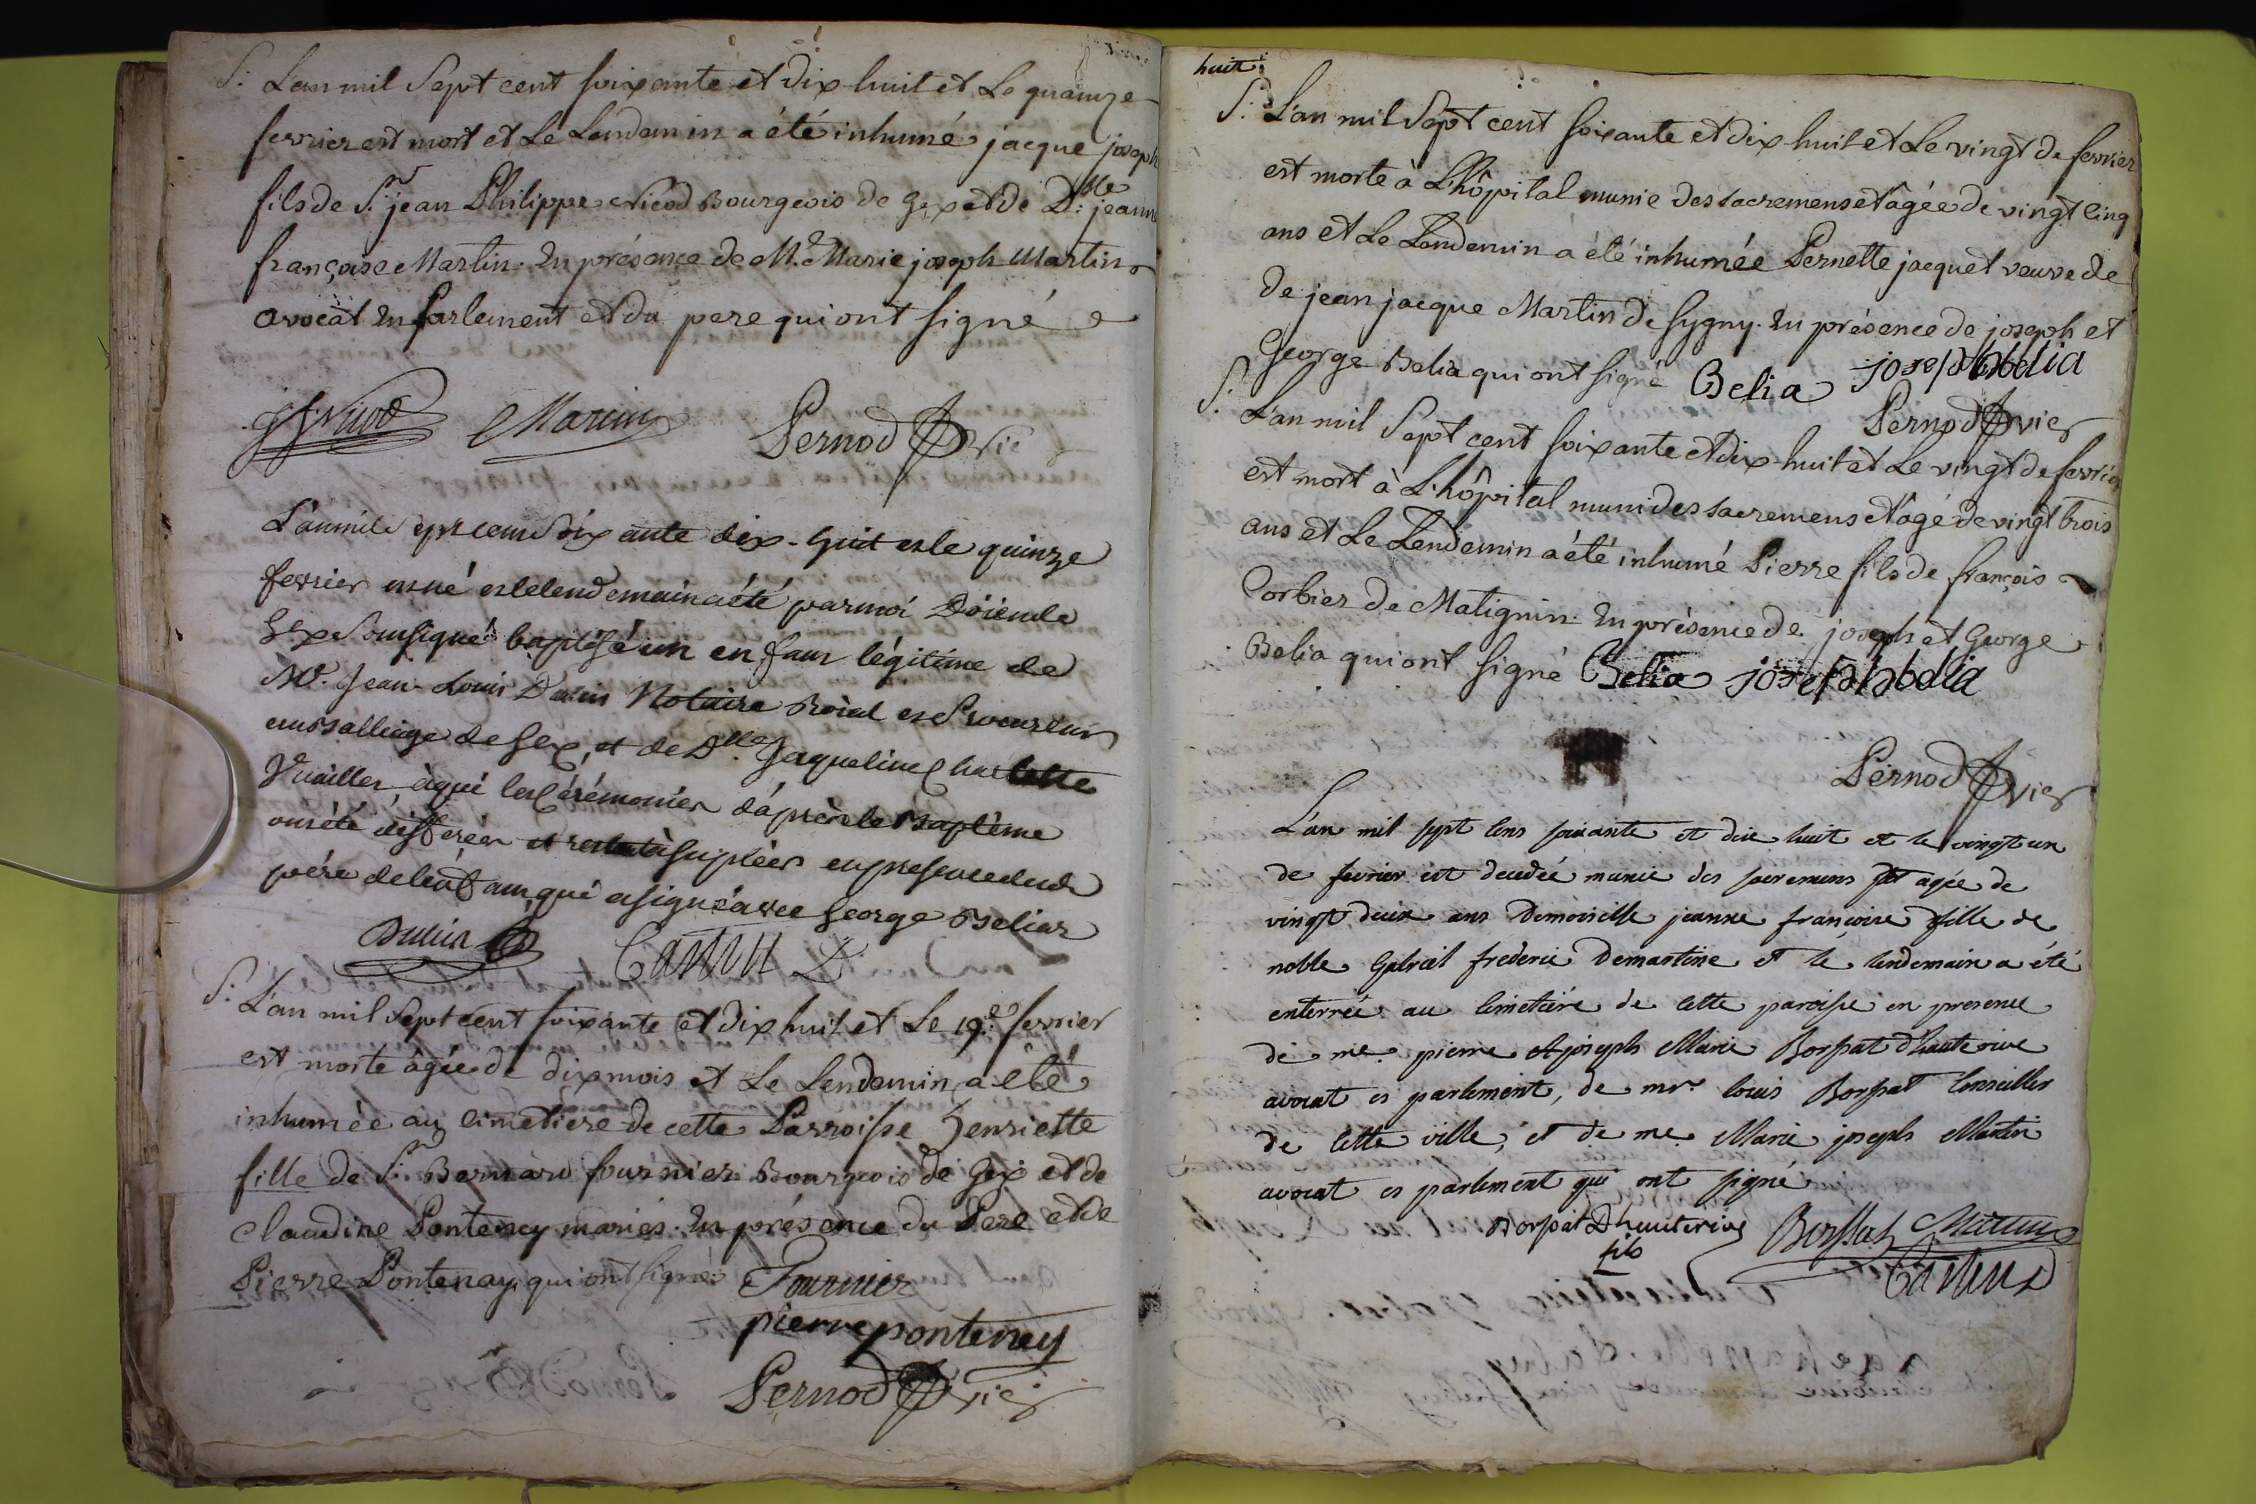 S. L'an mil sept cent soixante et dix huit et Le quainze
fevrier est mort et Le Lendemin a été inhumé jacque joseph
fils de Sr. jean Philippe Nicod Bourgeois de Gex et de Dlle. jeanne
françoise Martin. En présence de Me. Marie joseph Martin
avocat en Parlement et du pere qui ont signé
Nicod Martin Pernod vic
L'an mil sept cent soixante dix-huit et le quinze
fevrier est né et le lendemain a été par moi Doïen de
Gex soussigné baptisé un enfant légitime de
Me. Jean-Louis Roïal et Procureur
au Balliage de Gex, et de Dlle. Jaqueline
Vuailler, à qui les Cérémonies d'après le Baptême
ont été differées et suplées en presence du
père de l'enfant, qui a signé avec George Beliaz
Castin D
S. L'an mil sept cent soixante et dix huit et Le 19e. fevrier
est morte âgée de dix mois et Le Lendemin a été
inhumée au cimetiere de cette Parroisse henriette
fille de Sr. Bernard fournier Bourgeois de Gex et de
claudine Ponteney mariés. En présence du Pere et de
Pierre Pontenay qui ont signé Fournier
pierre ponteney
Pernod vic
huit
S. L'an mil sept cent soixante et dix huit et Le vingt de fevrier
est morte à L'hôpital munie des sacremens et âgée de vingt cinq
ans et Le Lendemin a été inhumée Pernette jacquet veuve de
de jean jacque Martin de Sygny. En présence de joseph et
George Belia qui ont signé Belia joseph belia
Pernod vic
S. L'an mil sept cent soixante et dix huit et Le vingt de fevrier
est mort à L'hôpital muni des sacremens et âgé de vingt trois
ans et Le Lendemin a été inhumé Pierre fils de françois
Corbier de Matignin. En présence de joseph et George
Belia qui ont signé Belia joseph belia
Pernod vic
L'an mil sept cens soixante et dix huit et le vingt un
de fevrier est decedée munie des sacremens et agée de
vingt deux ans Demoiselle jeanne françoise fille de
noble Gabriel frederic Demartine et le lendemain a été
enterrée au cimetiere de cette paroisse en presence
de me. pierre et joseph Marie Borssat d'hauterive
avocat es parlement, de mr. louis Borssat Conseiller
de cette ville, et de me. Marie joseph Martin
avocat es parlement qui ont signé
Borssat Dhauterive Borssat Martin
fils Castin D